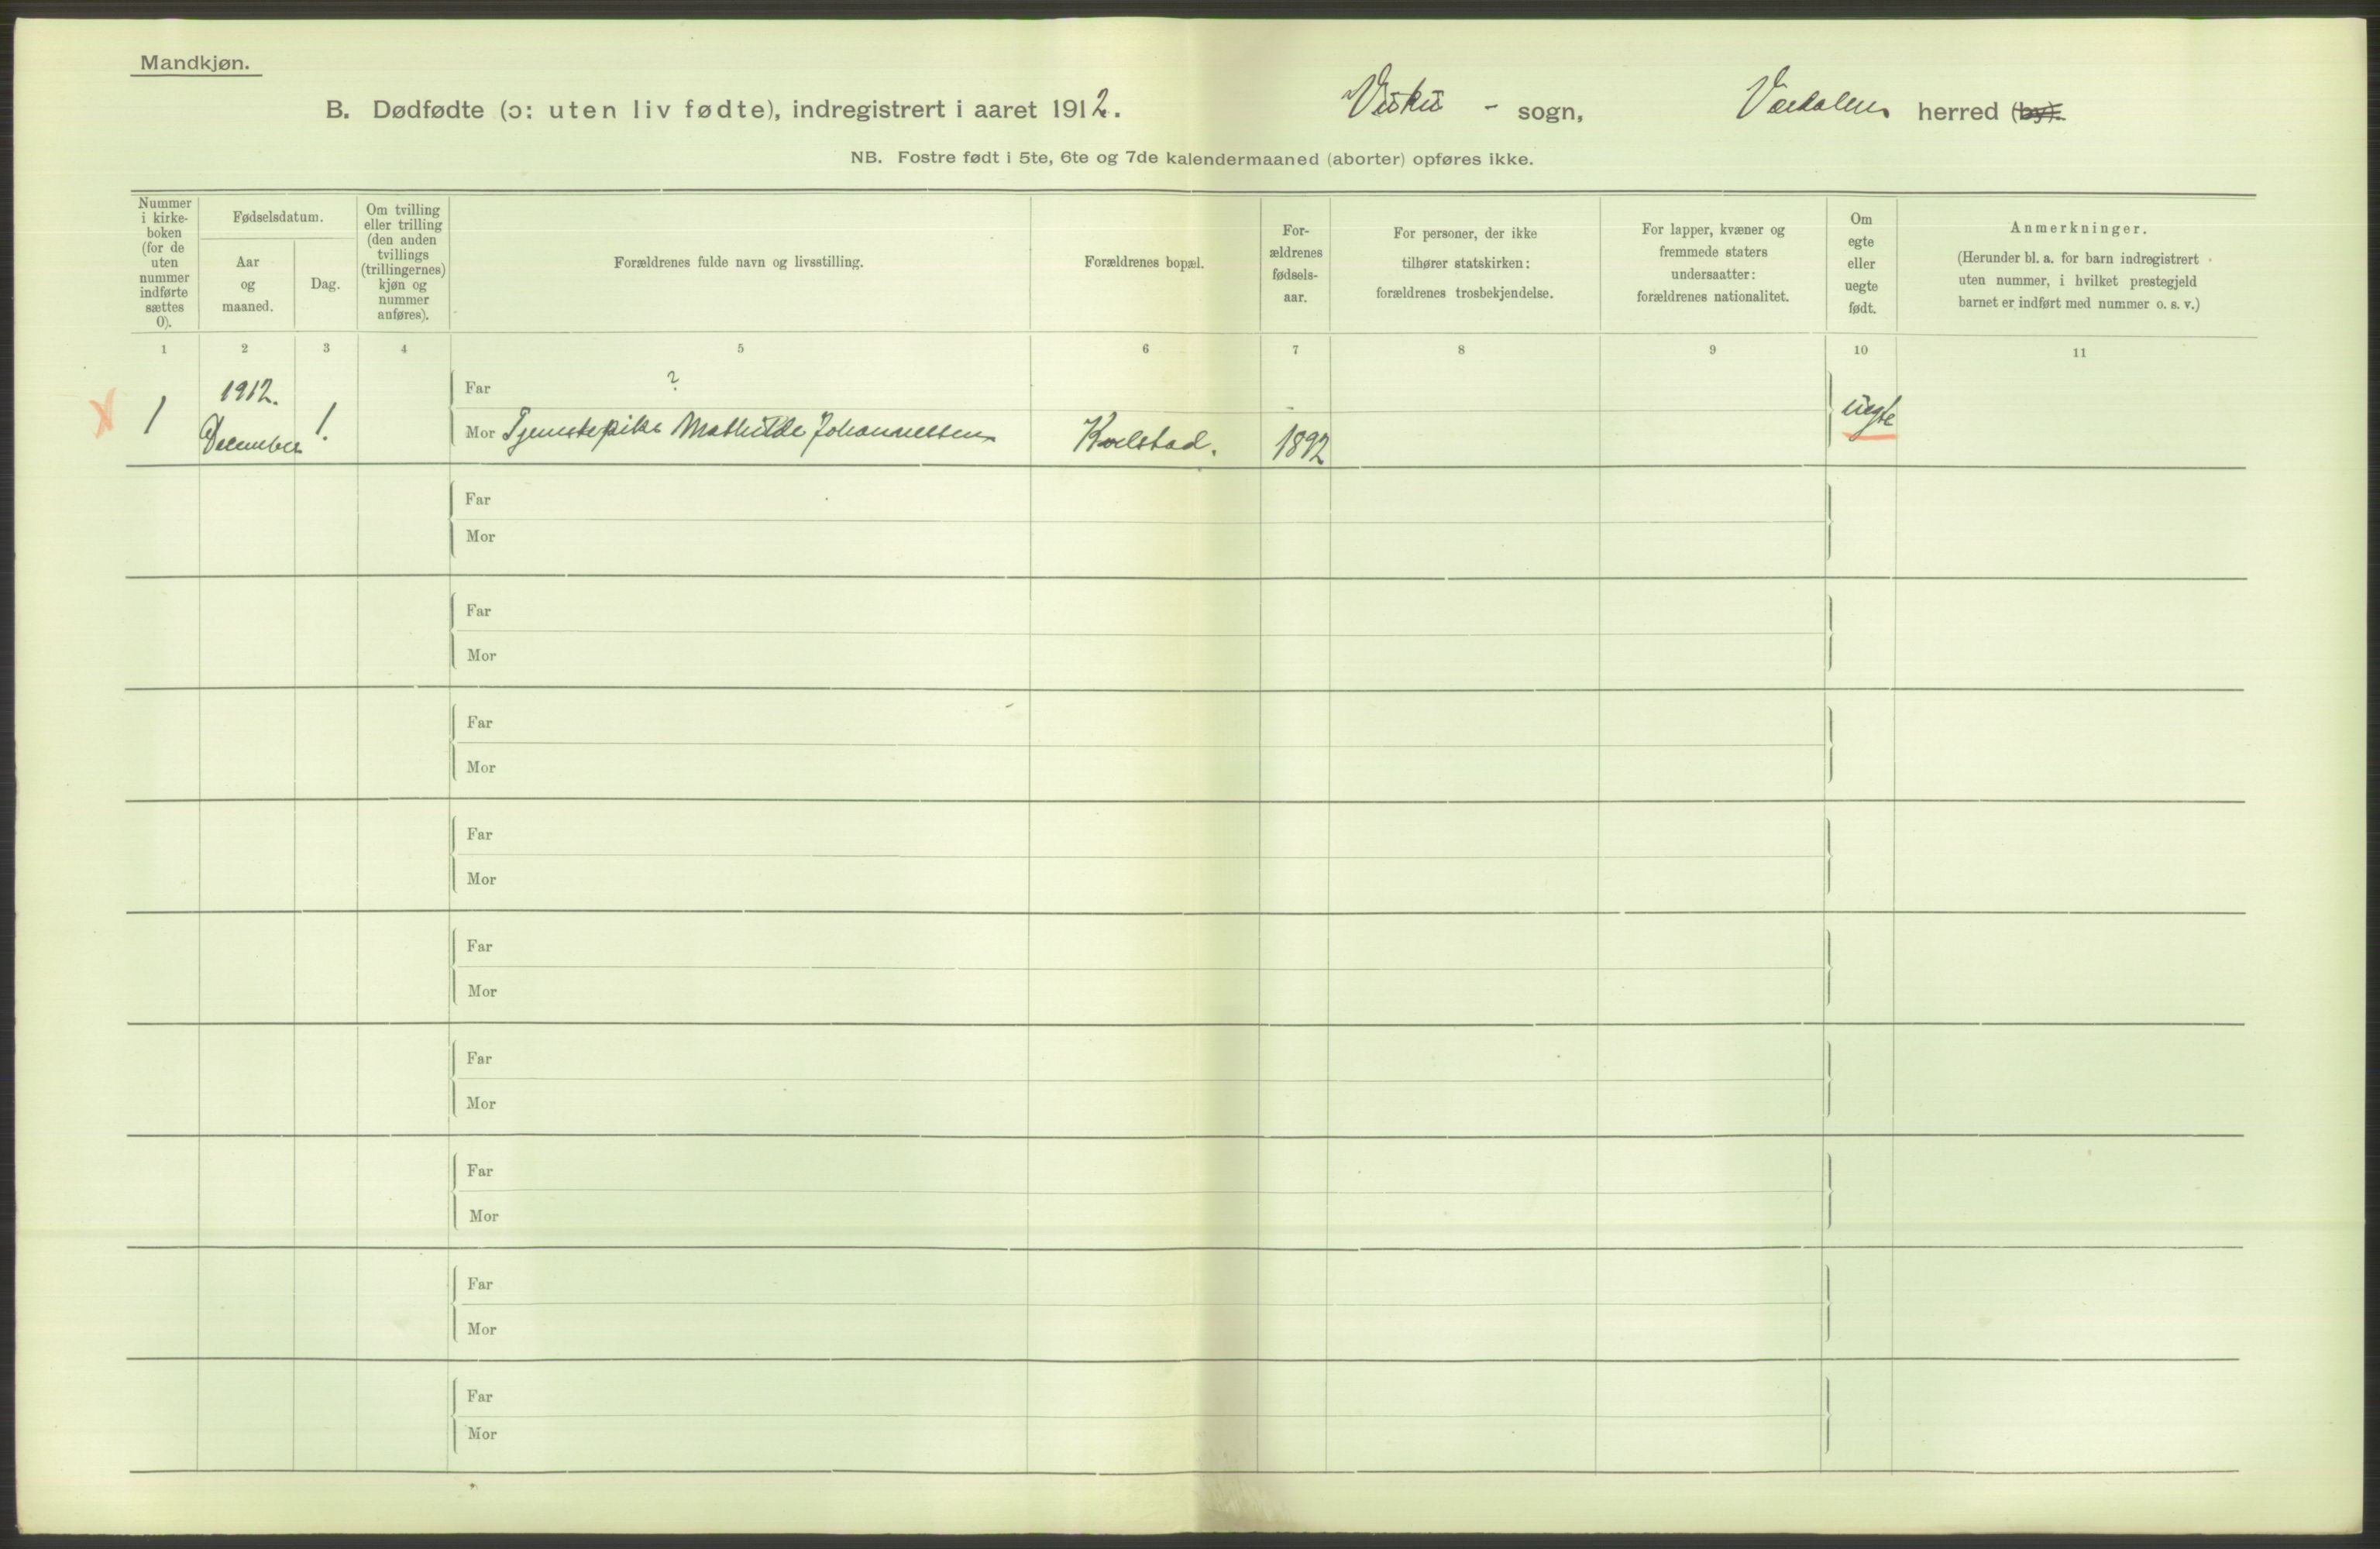 Mandkjøn.
B. Dødfødte (ɔ: uten liv fødte), indregistrert i aaret 1912. Vuku - sogn, Værdalens herred (by).
NB. Fostre født i 5te, 6te og 7de kalendermaaned (aborter) opføres ikke.
Nummer
i kirke-
boken
(for de
uten
nummer
indførte
sættes
0).
Fødselsdatum.
Aar
og
maaned.
Dag.
Om tvilling
eller trilling
(den anden
tvillings
(trillingernes)
kjøn og
nummer
anføres).
Forældrenes fulde navn og livsstilling.
Forældrenes bopæl.
For-
ældrenes
fødsels-
aar.
For personer, der ikke
tilhører statskirken:
forældrenes trosbekjendelse.
For lapper, kvæner og
fremmede staters
undersaatter:
forældrenes nationalitet.
Om
egte
eller
uegte
født.
Anmerkninger.
(Herunder bl. a. for barn indregistrert
uten nummer, i hvilket prestegjeld
barnet er indført med nummer o. s. v.)
1 2 3 4 5 6 7 8 9 10 11
X 1 1912. December 1.
Far ?
Mor Tjenestepike Mathilde Johannessen Kvelstad. 1892 uegte
Far
Mor
Far
Mor
Far
Mor
Far
Mor
Far
Mor
Far
Mor
Far
Mor
Far
Mor
Far
Mor